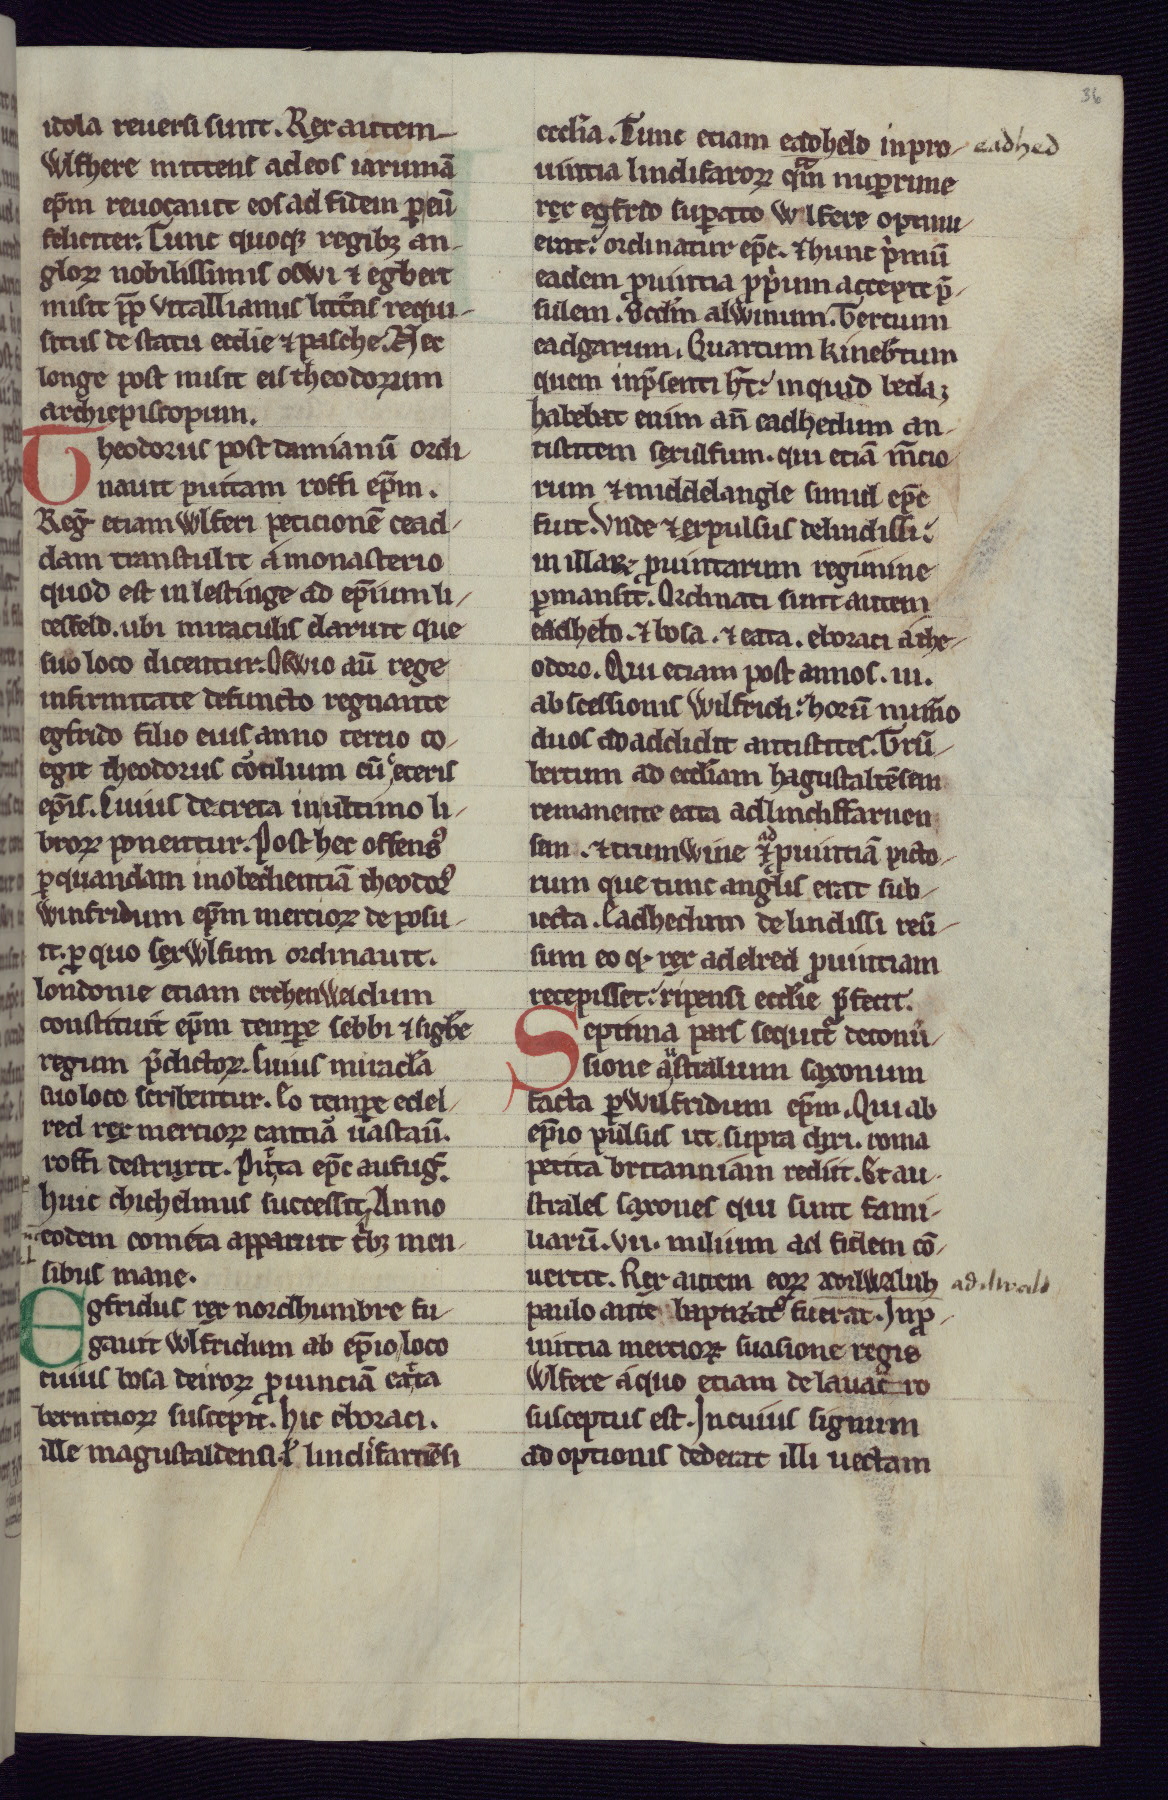 36
idola reuersi sunt. Rex autem
Wlfhere mittens ad eos iarumā
ep̄m reuocauit eos ad fidem p eū
feliciter. Tunc quoqꝫ regibꝫ an-
gloꝝ nobilissimis oswi ⁊ egbert
misit pp̄ vitallianus litt̄as requi-
situs de statu ecclie ⁊ pasche. Nec
longe post misit eis theodorum
archiepiscopum.
Theodorus post damianū ordi
nauit puttam roffi ep̄m.
Reḡ etiam Wlferi peticionē cead-
dam transtulit a monasterio
quod est in lestinge ad ep̄ium li-
cesfeld. ubi miraculis claruit que
suo loco dicentur. Oswio aū rege
infirmitate defuncto regnante
egfrido filio eius anno tercio co-
egit theodorus cōcilium cū ceteris
ep̄is. Cuius decreta in ultimo li-
broꝝ ponentur. Post hec offensꝰ
p quandam inobedientiā theodorꝰ
Winfridum ep̄m mercioꝝ deposu-
it. p quo sexWlfum ordinauit.
londonie etiam erchenWeldum
constituit ep̄m tempe sebbi ⁊ sigbe
regum p̄dictoꝝ. cuius miracl̄a
suo loco scribentur. Eo tempe edel-
red rex mercioꝝ cantiā uastaū.
roffi destruxit. Putta ep̄c aufuḡ.
huic chichelmus successit. Anno
eodem cometa apparuit t̄bꝫ men-
sibus mane.
Egfridus rex nordhumbre fu-
gauit Wlfridum ab ep̄io loco
cuius bosa deiroꝝ prouinciā eata
bernicioꝝ suscepit. hic eboraci.
ille magustaldensi ł lindisfarnēsi
eccl̄ia. Tunc etiam eadheld in pro-
eadhed
uintia lindisfaroꝝ qm̄ nuprime
rex egfrid supato Wlfere optinu-
erat: ordinatur ep̄c. ⁊ hunc p̄mū
eadem prouintia pprium accepit p̄-
sulem. Scd̄m alWinum. Tertium
eadgarum. Quartum kinebtum
quem in p̄senti h̄t: inquid beda;
habebat enim an̄ eadhedum an-
tistitem sexulfum. qui etiā m̄cio
rum ⁊ middelangle simul ep̄c
fuit. Vnde ⁊ expulsus de lindissi:
in illaꝝ prouintiarum regimine
pmansit. Ordinati sunt autem
eadheld. ⁊ bosa. ⁊ eata. eboraci a the-
odoro. Qui etiam post annos. iii.
abscessionis Wilfridi: horū num̄o
duos addidit antistites. Trū-
bertum ad eccl̄iam hagustaldēsem
remanente eata ad lindisfarnen
sem. ⁊ trumWine ad prouintiā picto-
rum que tunc anglis erat sub-
iecta. Eadhedum de lindissi reū-
sum eo q rex adelred prouintiam
recepisset: ripensi ecclie p̄fecit.
Septima pars sequit̄ de conū-
sione australium saxonum
facta p Wilfridum ep̄m. Qui ab
ep̄io pulsus ut supra dixi. roma
petita britanniam rediit. Et au-
strales saxones qui sunt fami-
liarū. vii. milium ad fidem cō-
uertit. Rex autem eoꝝ
adilwald
paulo ante baptizatꝰ fuerat. In p-
uintia mercioꝝ suasione regis
Wlfere a quo etiam de lauacro
susceptus est. In cuius signum
adoptionis dederat illi uectam